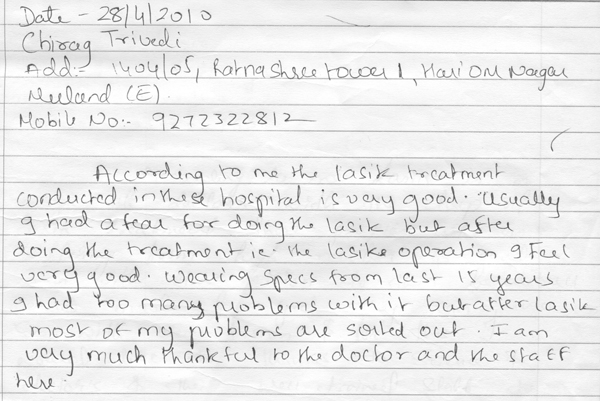 Date - 28/4/2010
Chirag Trivedi
Add:- 1404/05, Ratnashree tower 1, Hari OM Nagar
Mulund (E).
Mobile No:- 9272322812
According to me the lasik treatment
conducted in these hospital is very good. Usually
I had a fear for doing the lasik but after
doing the treatment ie. the lasike operation I Feel
very good. Wearing specs from last 15 years
I had too many problems with it but after lasik
most of my problems are sorted out. I am
very much thankful to the doctor and the staff
here.